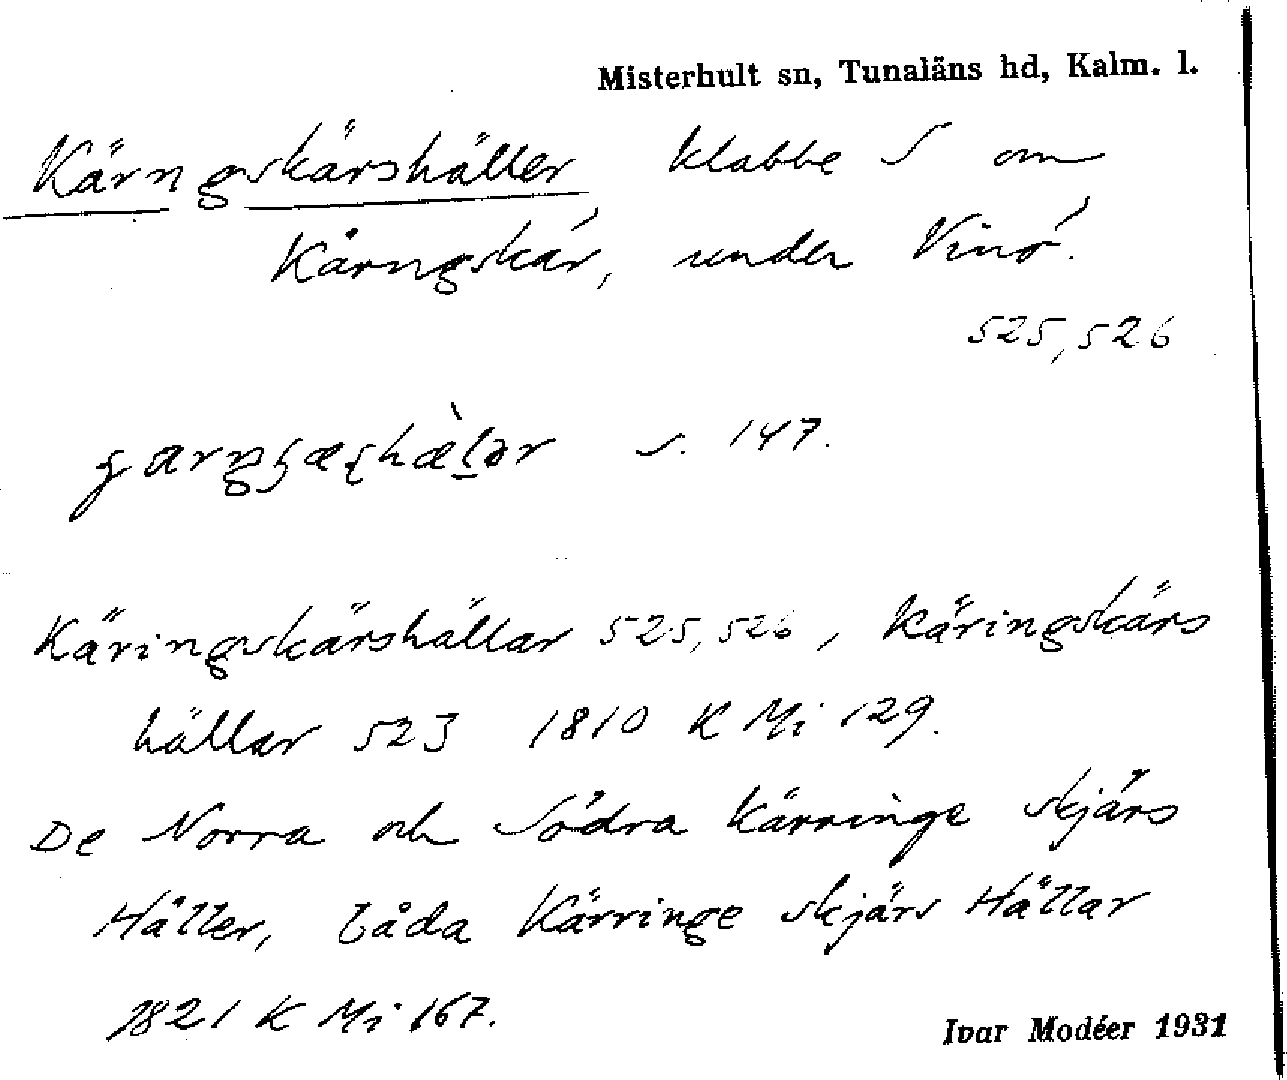 Misterhult sn, Tunaläns hd, Kalm. l.
Kärngskärshäller klabbe S om
Kärngskär, under Vinö.
525, 526
s. 147.
Käringskärshällar 525, 526, Käringskärs
hällar 523 1810 K Mi 129.
De Norra och Södra Kärringe skjärs
Häller, båda Kärringe skjärs Hällar
1821 K Mi 167.
Ivar Modéer 1931